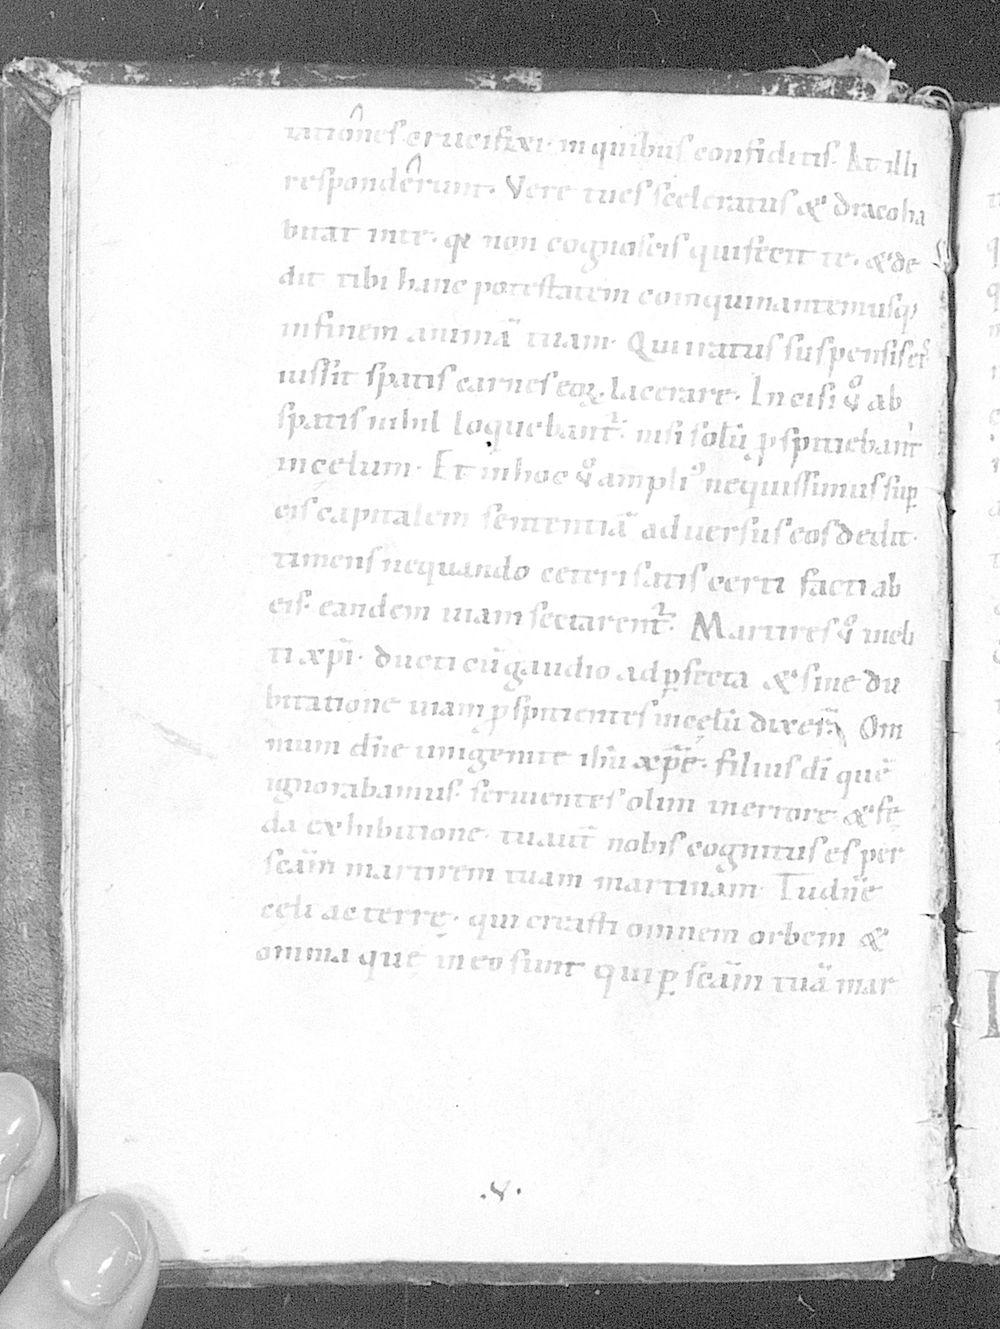 rationes crucifixi. in quibus confiditis. At illi
responderunt. Vere tu es sceleratus & draco ha
bitat in te. qͥ non cognoscis qui fecit te. & de
dit tibi hanc potestatem coinquinantem usq;
in finem animā tuam. Qui iratus suspensis eis̄
iussit spatis carnes eoꝝ. lacerare. Incisi ů ab
spatis nihil loquebant᷑. nisi solū ꝓspitiebant᷑
in celum. Et in hoc ů ampliꝰ nequissimus suꝑ
eis capitalem sententiā adversus eos dedit.
timens nequando ceteri satis certi facti ab
eis. eandem uiam sectarent᷑. Martires ů incli
ti xp̄i. ducti cū gaudio ad ꝑfecta & sine du
bitatione uiam ꝓspitientes in celū dixer̄. Om
nium dn̄e unigenite ihū xp̄e. filius dī quē
ignorabamus. seruientes olim in errore. & fę
da exhibitione. tu aut̄ nobis cognitus es per
scām martirem tuam martinam. Tu dn̄e
cęli ac terrę. qui creasti omnem orbem &
omnia quę in eo sunt qui ꝑ scām tuā mar
.V.